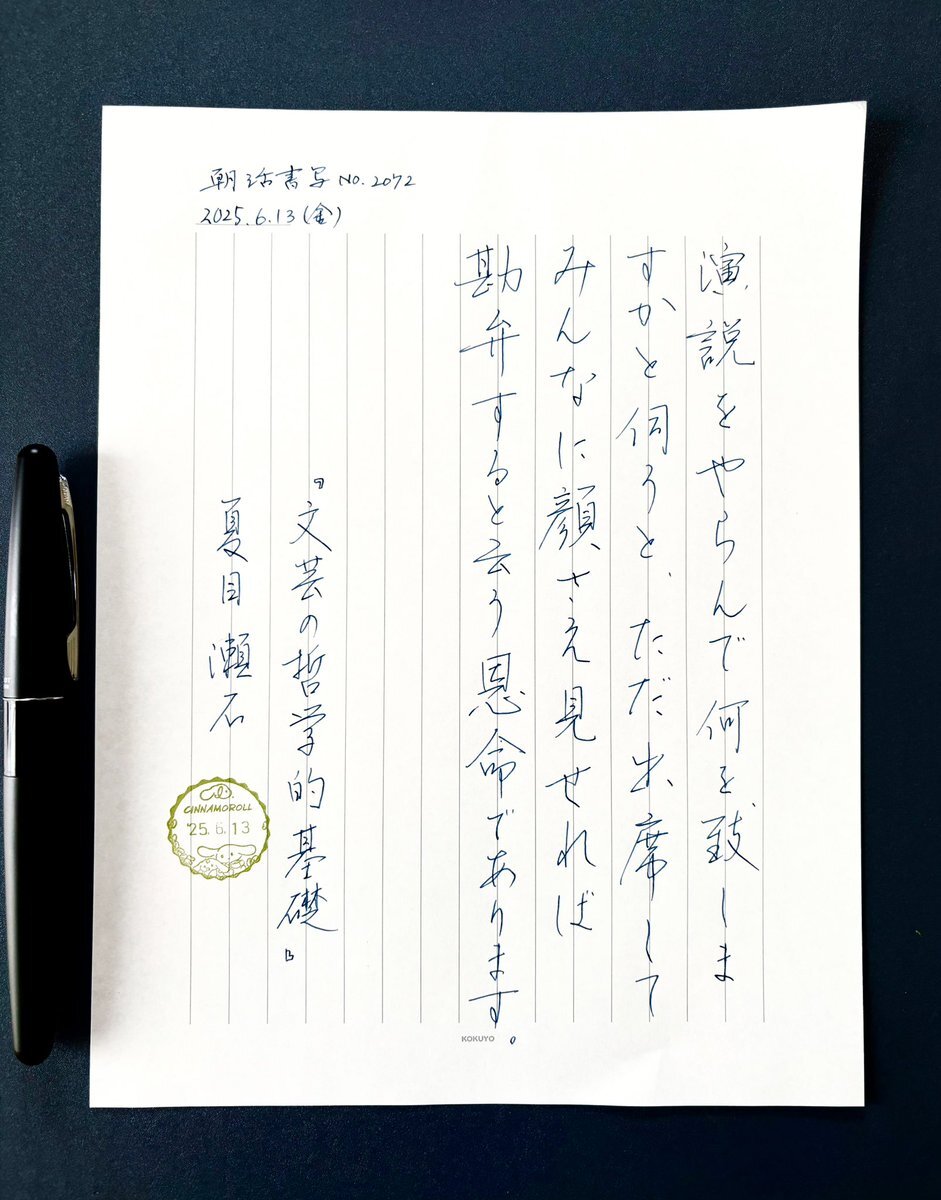 朝活書写 No.2072
2025.6.13(金)
演説をやらんで何を致しま
すかと伺うと、ただ出席して
みんなに顔さえ見せれば
勘弁すると云う恩命であります。
『文芸の哲学的基礎』
夏目瀬石
CINNAMOROLL
'25.6.13
KOKUYO